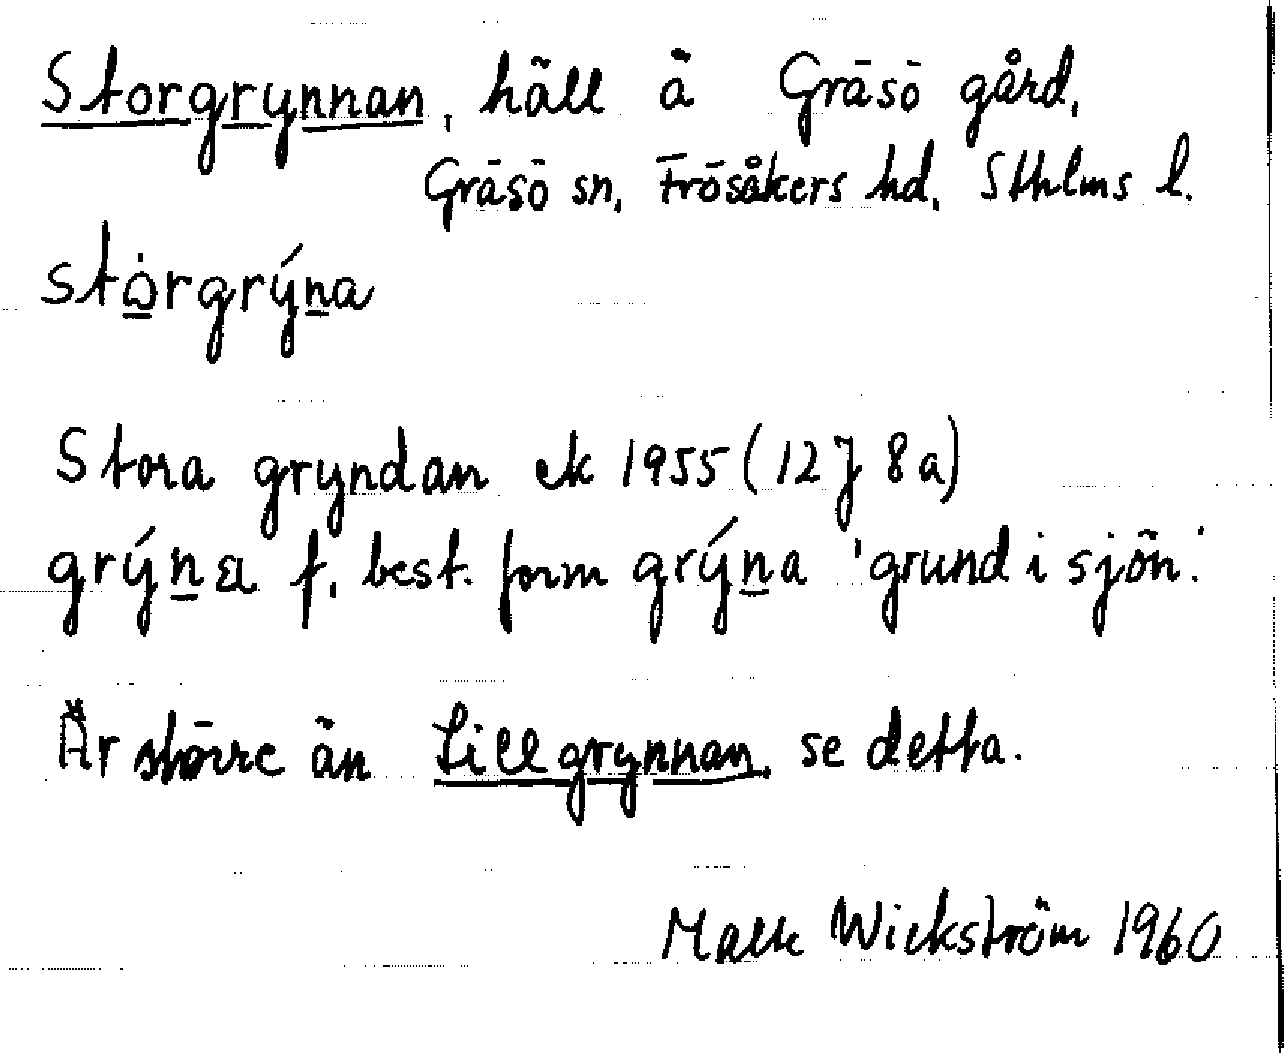 Storgrynnan, häll å Gräsö gård,
Gräsö sn, Frösåkers hd, Sthlms l.
stòrgrýn̲a
Stora gryndan ek 1955 (12J 8a)
grýn̲a f. best. form grýn̲a 'grund i sjön'.
Är större än Lillgrynnan, se detta.
Wickström 1960